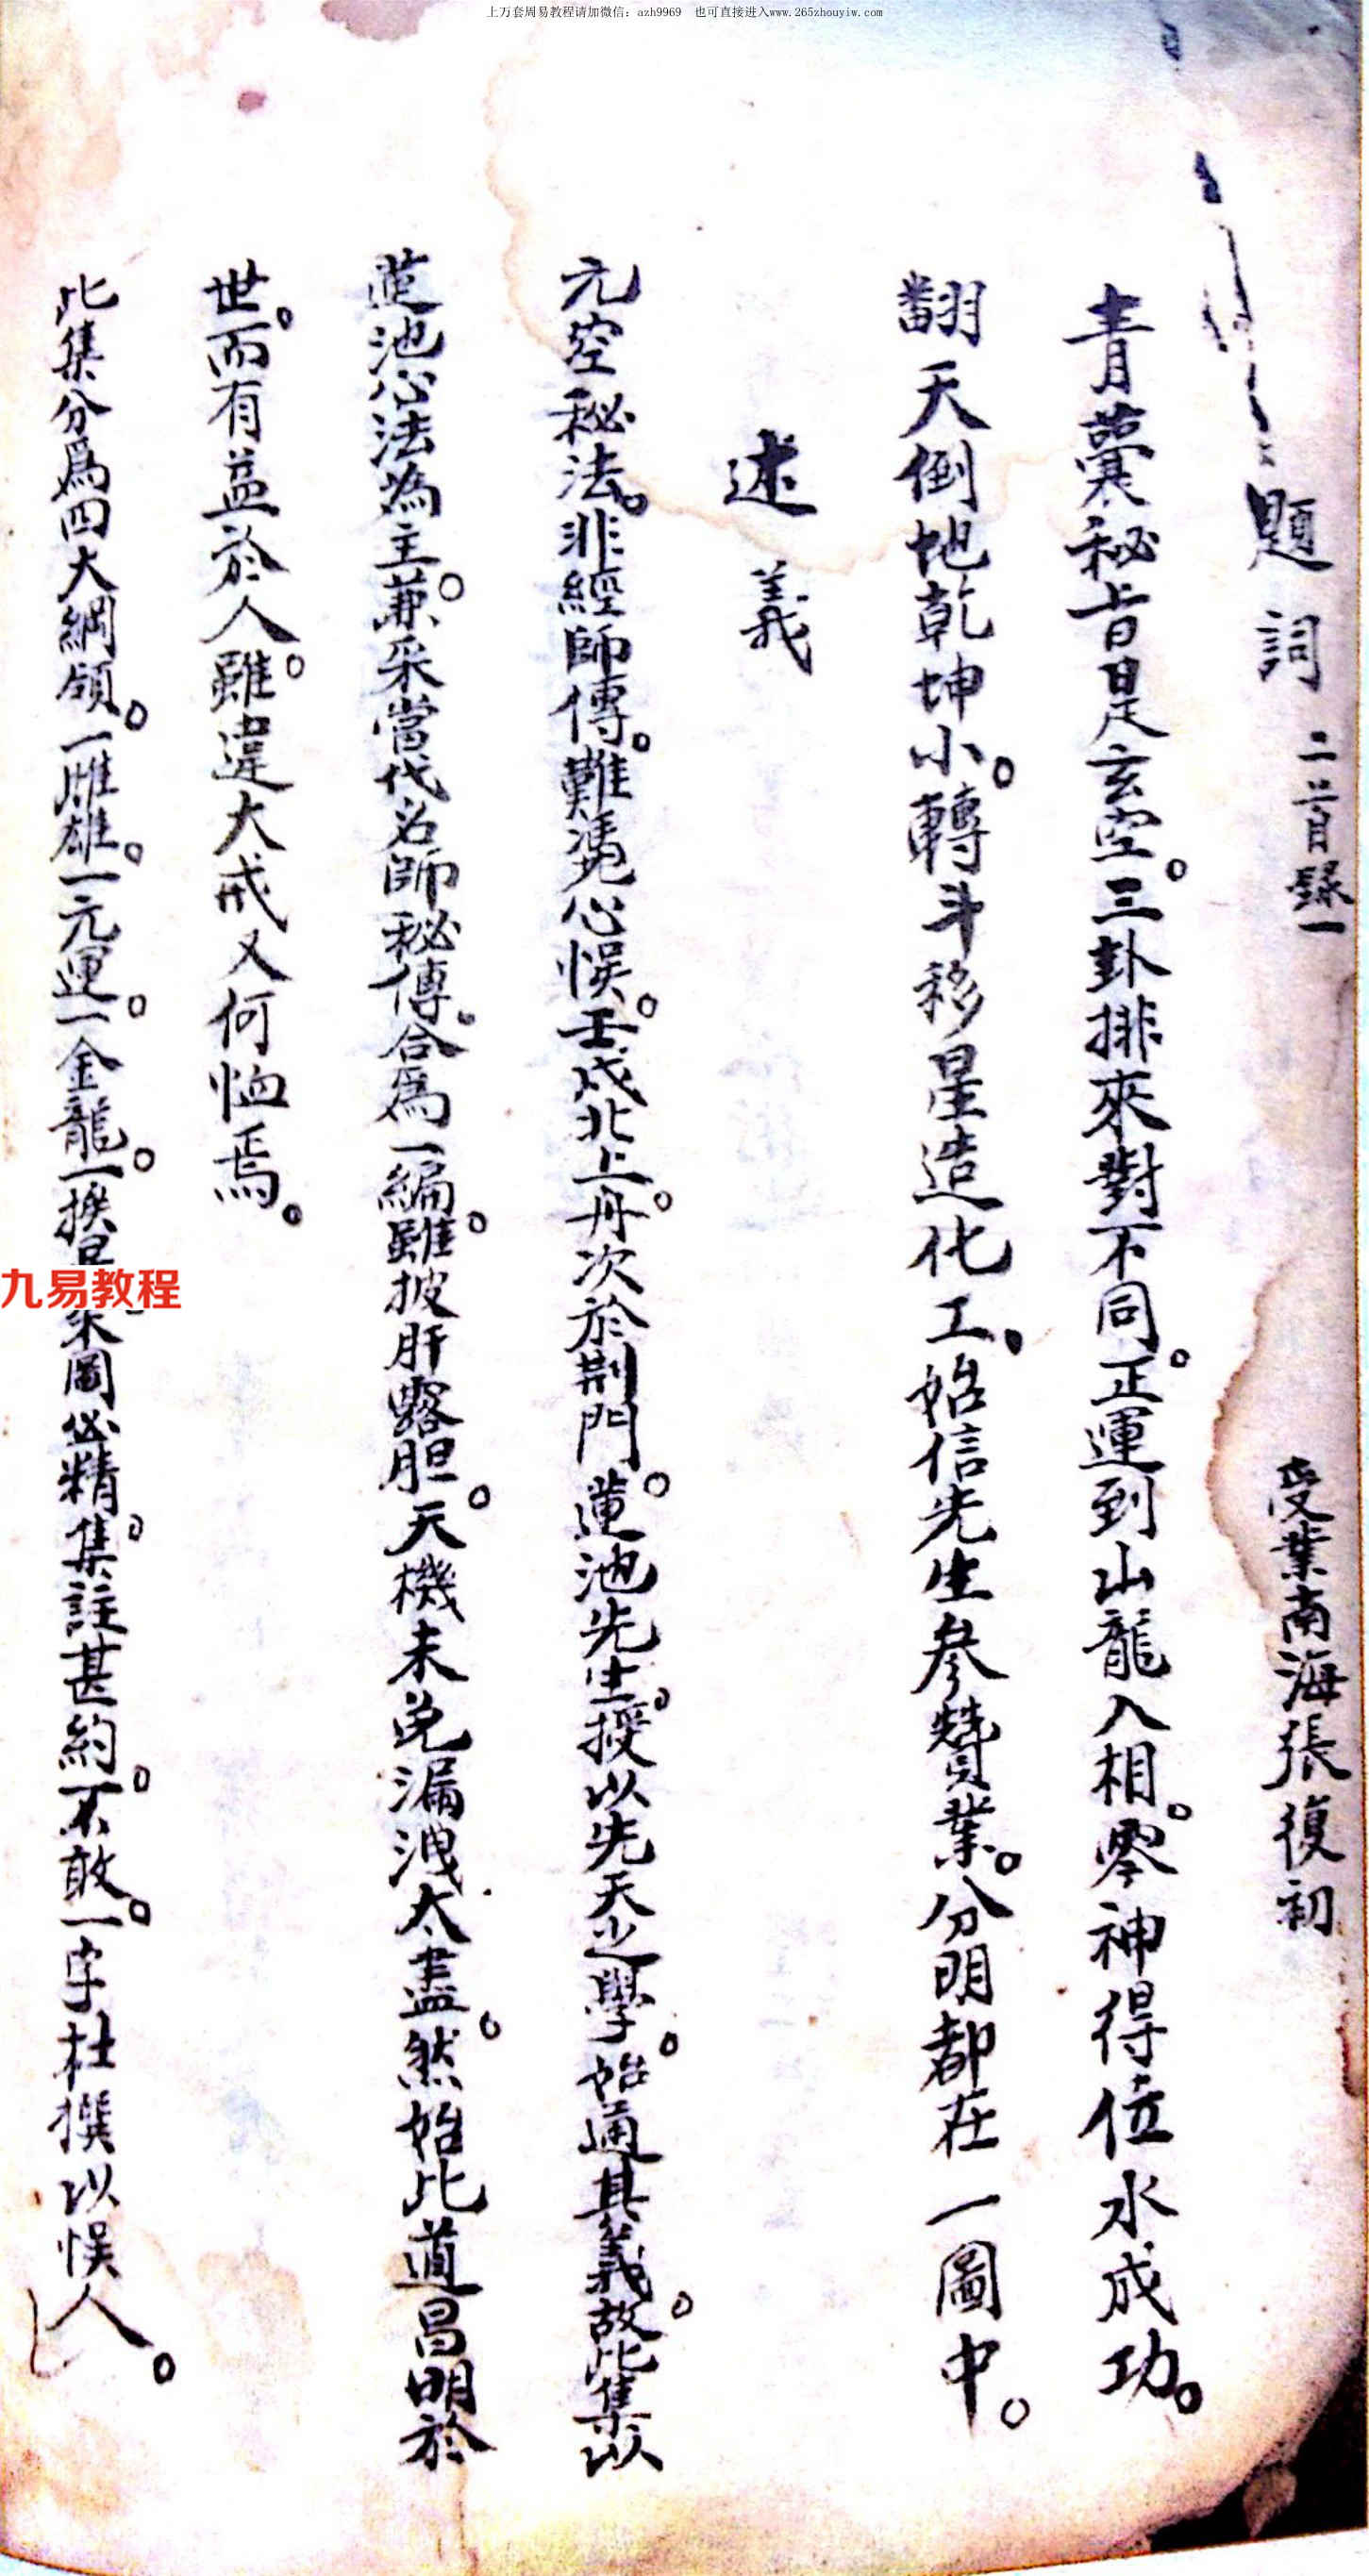 上万套周易教程请加微信：azh9969 也可直接进入www.265zhouyiw.com
題詞 二首録一 受業南海張復初
青囊秘旨是玄空。三卦排來對不同。正運到山龍入相。零神得位水成功。
翻天倒地乾坤小。轉斗移星造化工。始信先生參贊業。分明都在一圖中。
述義
元空秘法。非經師傳。難憑心悞。壬戌北上。舟次於荆門。蓮池先生。授以先天之學。始通其義。故此集以
蓮池心法為主。兼采當代名師秘傳。合爲一編。雖披肝露胆。天機未免漏洩太盡。然始此道昌明於
世。而有益於人。雖違大戒又何恤焉。
此集分爲四大綱領。一雌雄。一元運。一金龍。一揆
圖必精。集註甚約。不敢。一字杜撰以悞人。
九易教程